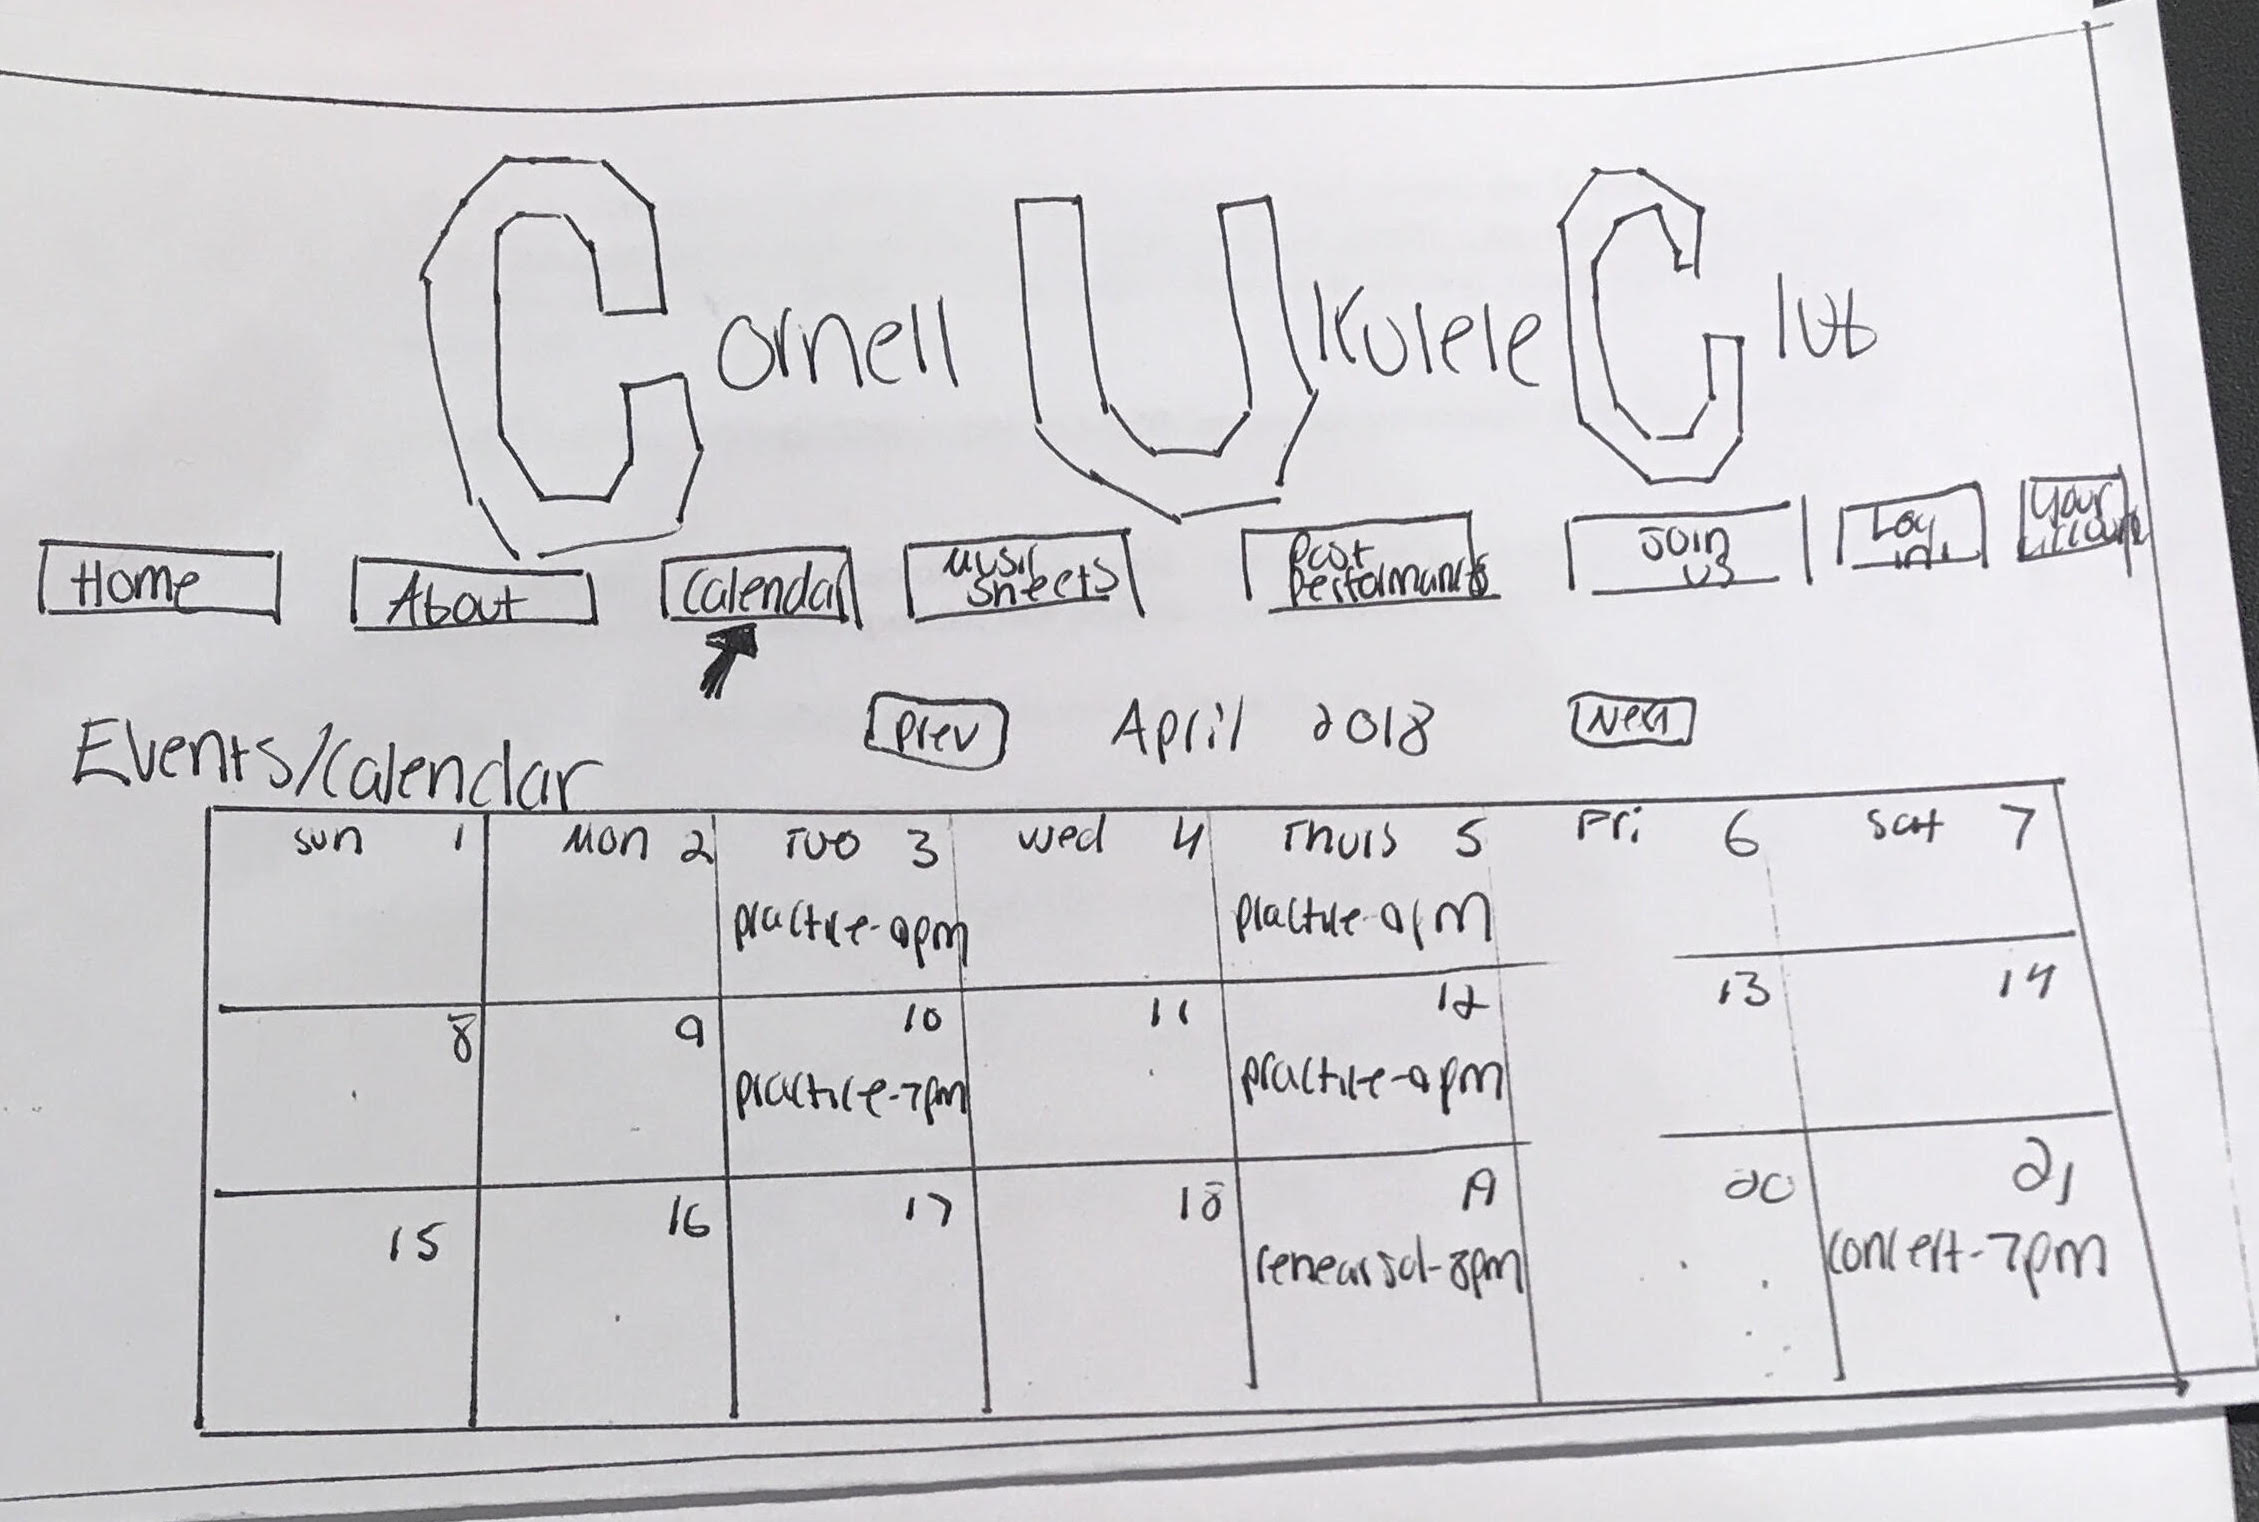 Cornell Ukulele Club
Home
About
Calendar
Music
Sheets
Past
Performances
Join
us
Log
in
Your
Account
Events/Calendar
Prev April 2018 Next
Sun 1 Mon 2 Tue 3 Wed 4 Thurs 5 Fri 6 Sat 7
practice-9pm practice-9pm
8 9 10 11 12 13 14
practice-7pm practice-9pm
15 16 17 18 19 20 21
rehearsal-8pm concert-7pm